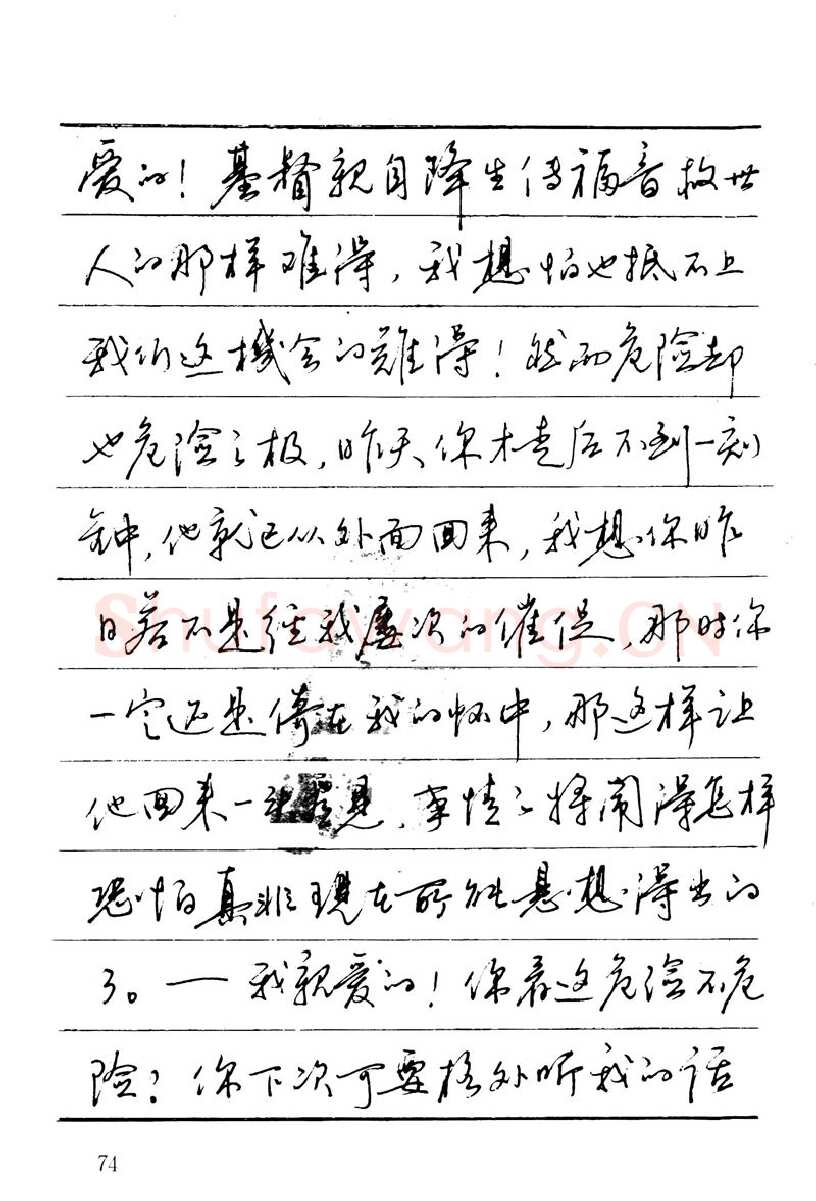 爱的！基督親自降生傳福音救世
人的那样难得，我想怕也抵不上
我们这機会的難得！然而危险却
也危险之极，昨天你才走后不到一刻
钟，他就已从外面回来，我想你昨
日若不是經我屡次的催促，那时你
一定还是倚在我的怀中，那这样让
他回来一起看見，事情之将闹得怎样
恐怕真非現在所能悬想得出的
了。——我親爱的！你看这危险不危
险？你下次可要格外听我的话
74
ShufaWang.CN